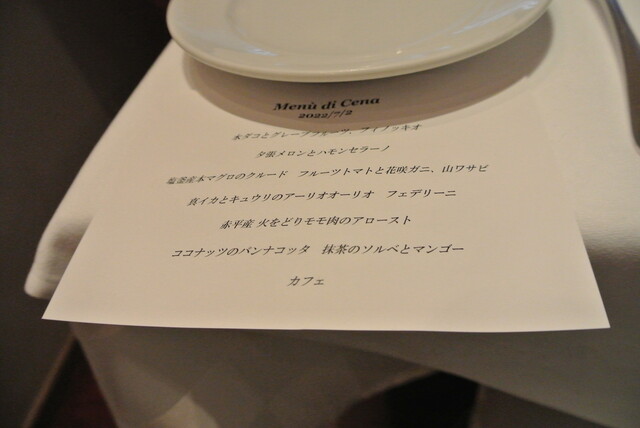 Menù di Cena
2022/7/2
水ダコとグレープフルーツ、フィノッキオ
夕張メロンとハモンセラーノ
塩釜産本マグロのクルード　フルーツトマトと花咲ガニ、山ワサビ
真イカとキュウリのアーリオオーリオ　フェデリーニ
赤平産 火をどりモモ肉のアロースト
ココナッツのパンナコッタ　抹茶のソルベとマンゴー
カフェ